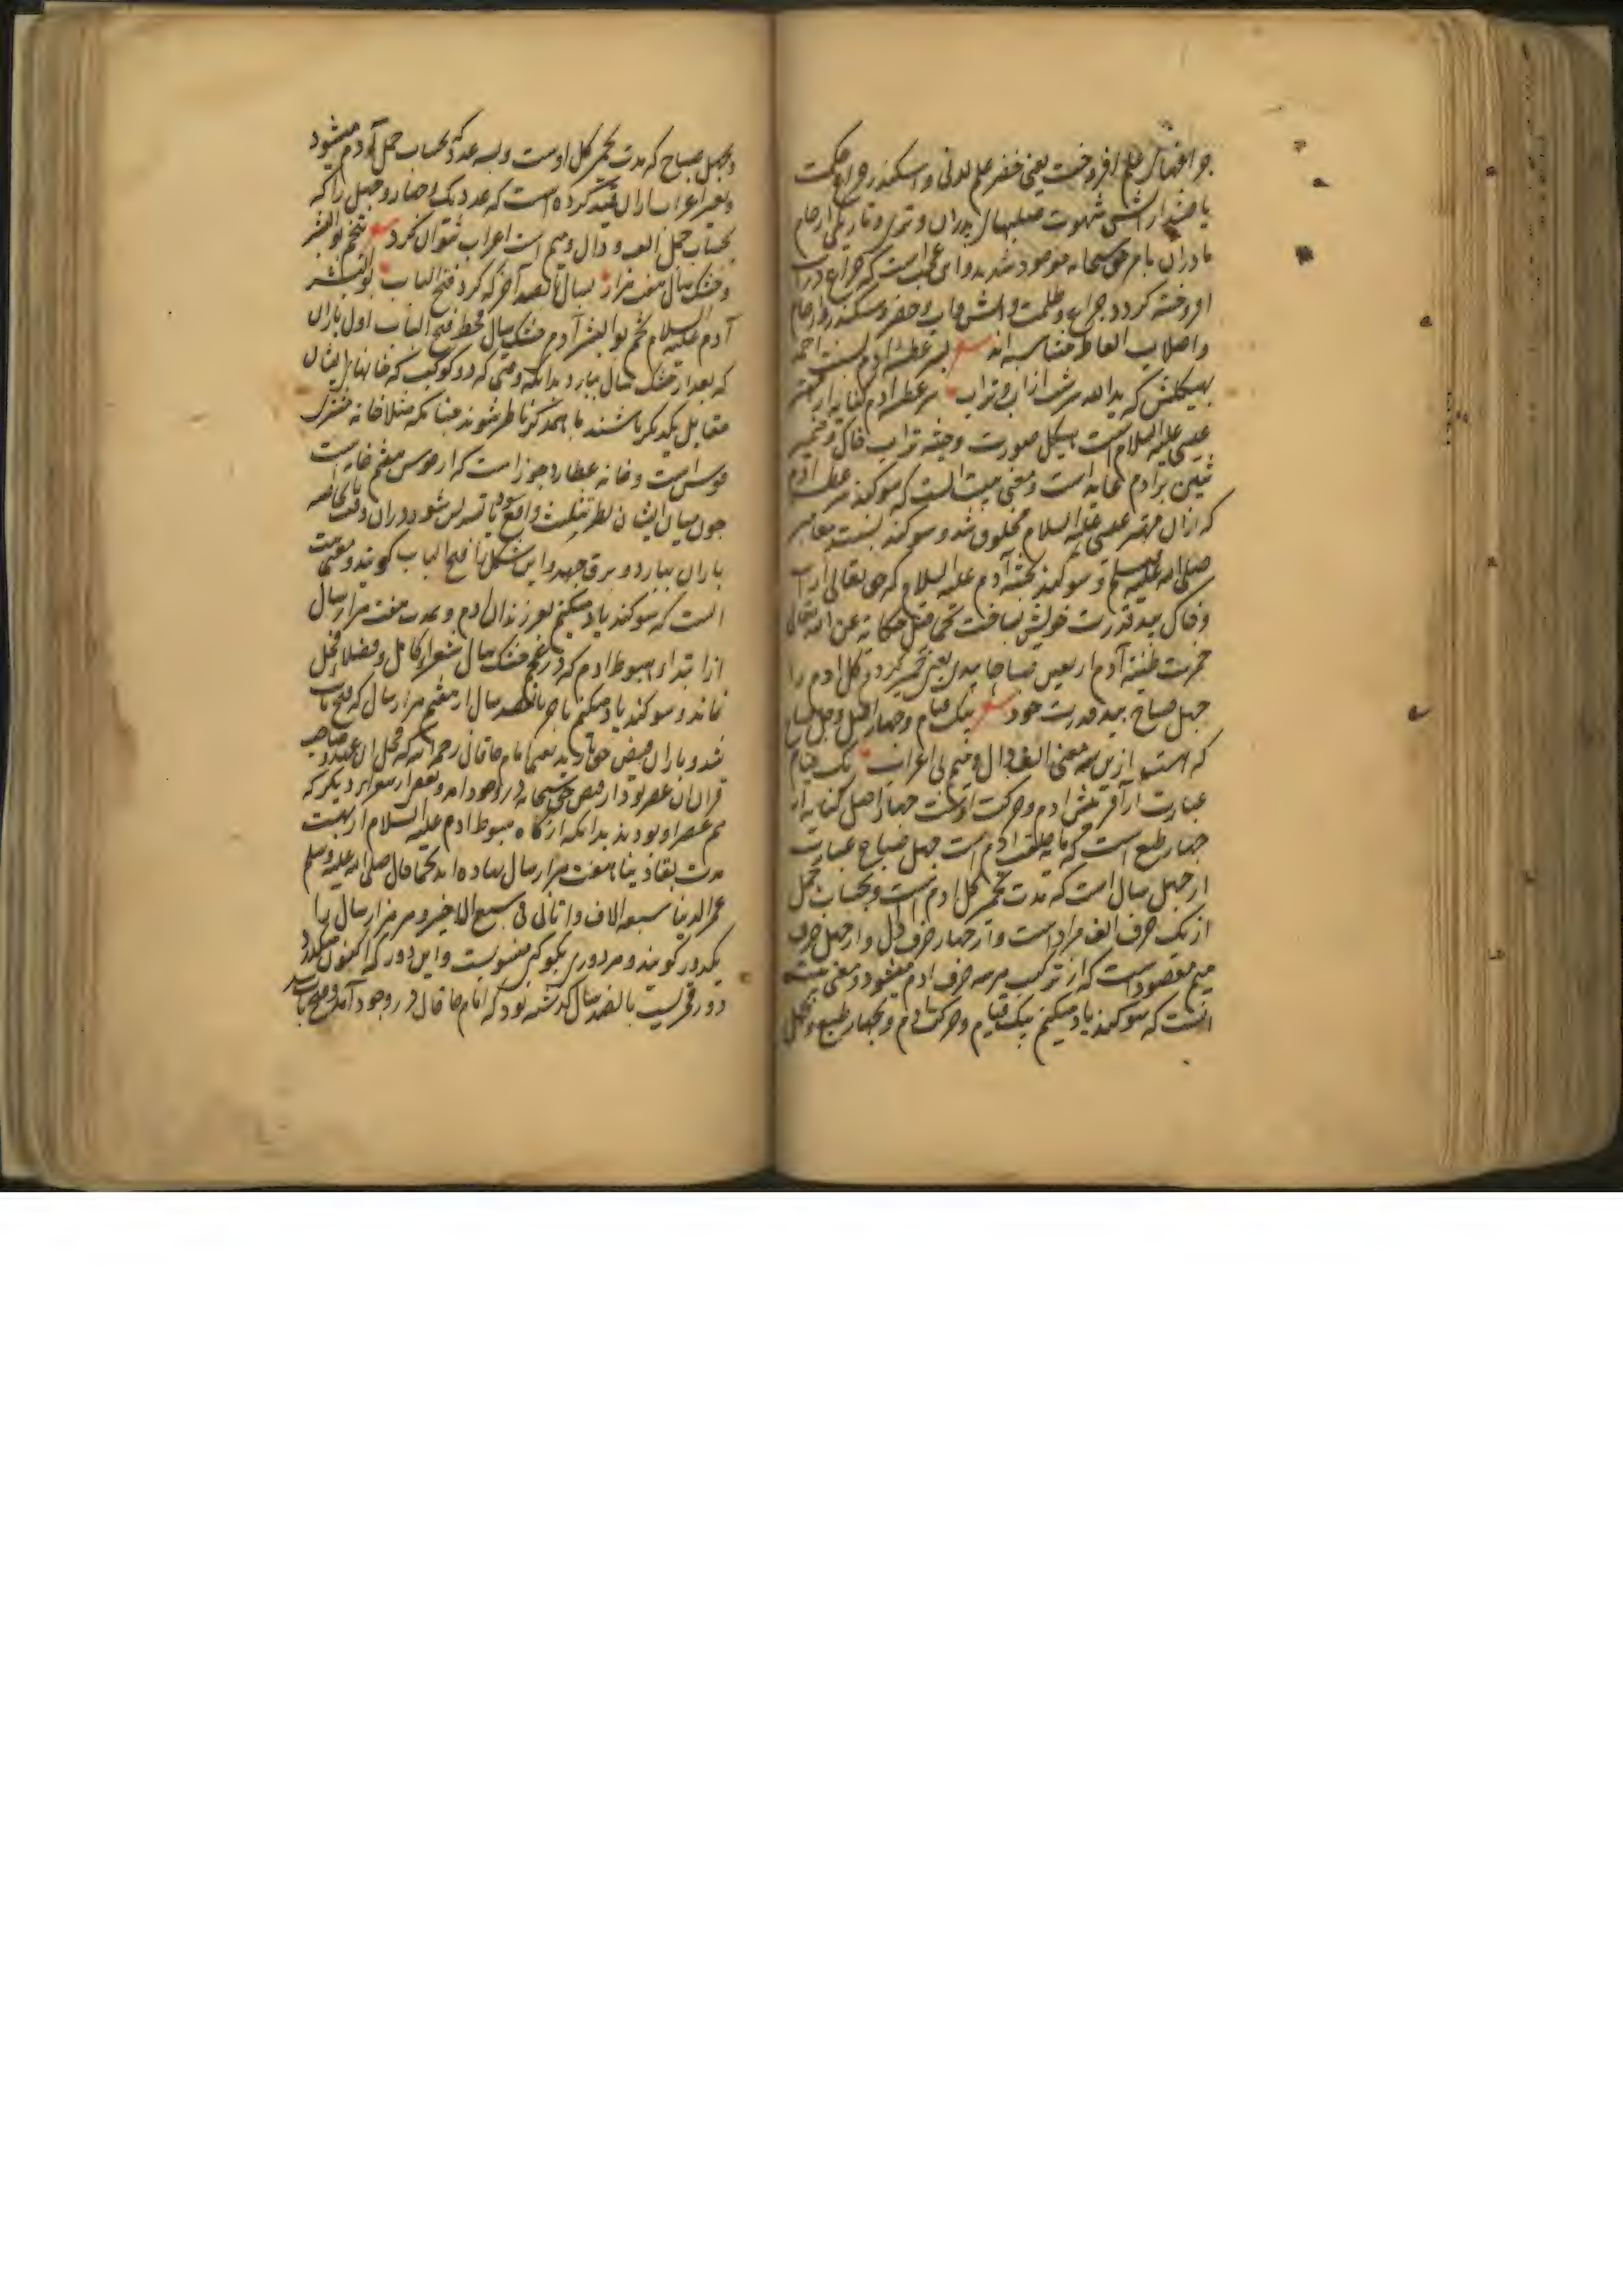 چراغهای علم افروخت یعنی خضر علم لدنی و اسکندر چراغ حکمت
یا خضر از آتش شهوت صلبهای پدران و تری و تاریکی ارحام
مادران بامر حق سبحانه موجود شدند و ای عجب است که چراغ در آب
افروخته کردد چراغ و ظلمت و آتش و آب و خضر و سکندر و ارحام
و اصلاب الفاظ متناسبه اند بسر عطسه آدم بسنت احمد
بهیکلش که یدالله سرشت از آب و تراب سر عطسه آدم کنایه از مهتر
عیسی علیه السلام است هیکل صورت و جثه تراب خاک و ضمیر
شین بر آدم عاید است و معنی بیت آنست که سوکند بسر عطسه آدم
که ازان مهتر عیسی علیه السلام مخلوق شد و سوکند بسنت پیغامبر
صلی الله علیه وسلم و سوکند بجثه آدم علیه السلام که حق تعالی از آب
و خاک بید قدرت خویش ساخت کما قیل حکایة عن الله تعالی
خمرت طینة آدم اربعین صباحا بیدی یعنی خمیر کردم کل آدم را
چهل صباح بید قدرت خود بیک قیام و چهار اصل و چل صباح
که هست ازین سه معنی الف و دال و میم بی اعراب یک قیام
عبارت از آفرینش آدم و حرکت اوست چهار اصل کنایه از
چهار طبع است که مایه خلقت آدم است چهل صباح عبارت
از چهل سال است که مدت تخمیر کل آدم است و بحساب جمل
از یک حرف الف مراد است و از چهار حرف دال و از چهل حرف
میم مقصود است که از ترکیب هر سه حرف آدم میشود و معنی بیت
آنست که سوکند یاد میکنم بیک قیام و حرکت آدم و بچهار طبع و بچهل
و بچهل صباح که مدت تخمیر کل اوست و بسه عدد که بحساب جمل آدم میشود
و بغیر اعراب ازان قید کرده است که عدد یک و چهار و چهل را که
بحساب جمل الف و دال و میم است اعراب نتوان کرد بتخم بوالبشر
و خشک سال هفت هزار بسال پانصد آخر که کرد فتح الباب بوالبشر
آدم علیه السلام تخم بوالبشر آدم خشک سال قحط فتح الباب اول باران
که بعد از خشک سال ببارد بدانکه وقتی که دو کوکب که خانهای ایشان
مقابل یکدیکر باشند با همدکر ناظر شوند چنانکه مثلا خانه مشتری
قوس است و خانه عطارد جوزا است که از قوس هفتم خانه است
چون میان ایشان نظر تثلیث واقع شود یا تسدیس شود دران وقت
باران ببارد و برق جهد و این شکل را فتح الباب کویند و معنی بیت
آنست که سوکند یاد میکنم بفرزندان آدم و بمدت هفت هزار سال
از ابتداء هبوط آدم که در خشک سال شعراء کامل و فضلاء
نماند و سوکند یاد میکنم بآخر پانصد سال از هفتم هزار سال که فتح باب
شد و باران فیض حق بارید یعنی امام خاقانی رحمه الله که صاحب
قران آن عصر بود از فیض حق سبحانه در وجود آمد و بعضی از شعراء دیکر که
هم عصر او بودند بدانکه از کاه هبوط آدم علیه السلام از بهشت
مدت بقاء دنیا هفت هزار سال نهاده اند کما قال صلی الله علیه وسلم
عمر الدنیا سبعة الاف و انا فی سبع الاخیر و هر هزار سال را
یکدور کویند و هر دوری بکوکبی منسوبست و این دور که اکنون میکذرد
دور قمریست پانصد سال کذشته بود که امام خاقانی در وجود آمد و فتح باب